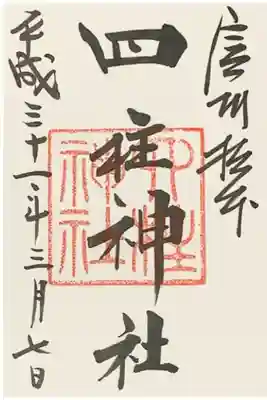 信州松本
四柱神社
平成三十一年三月七日
四柱神社